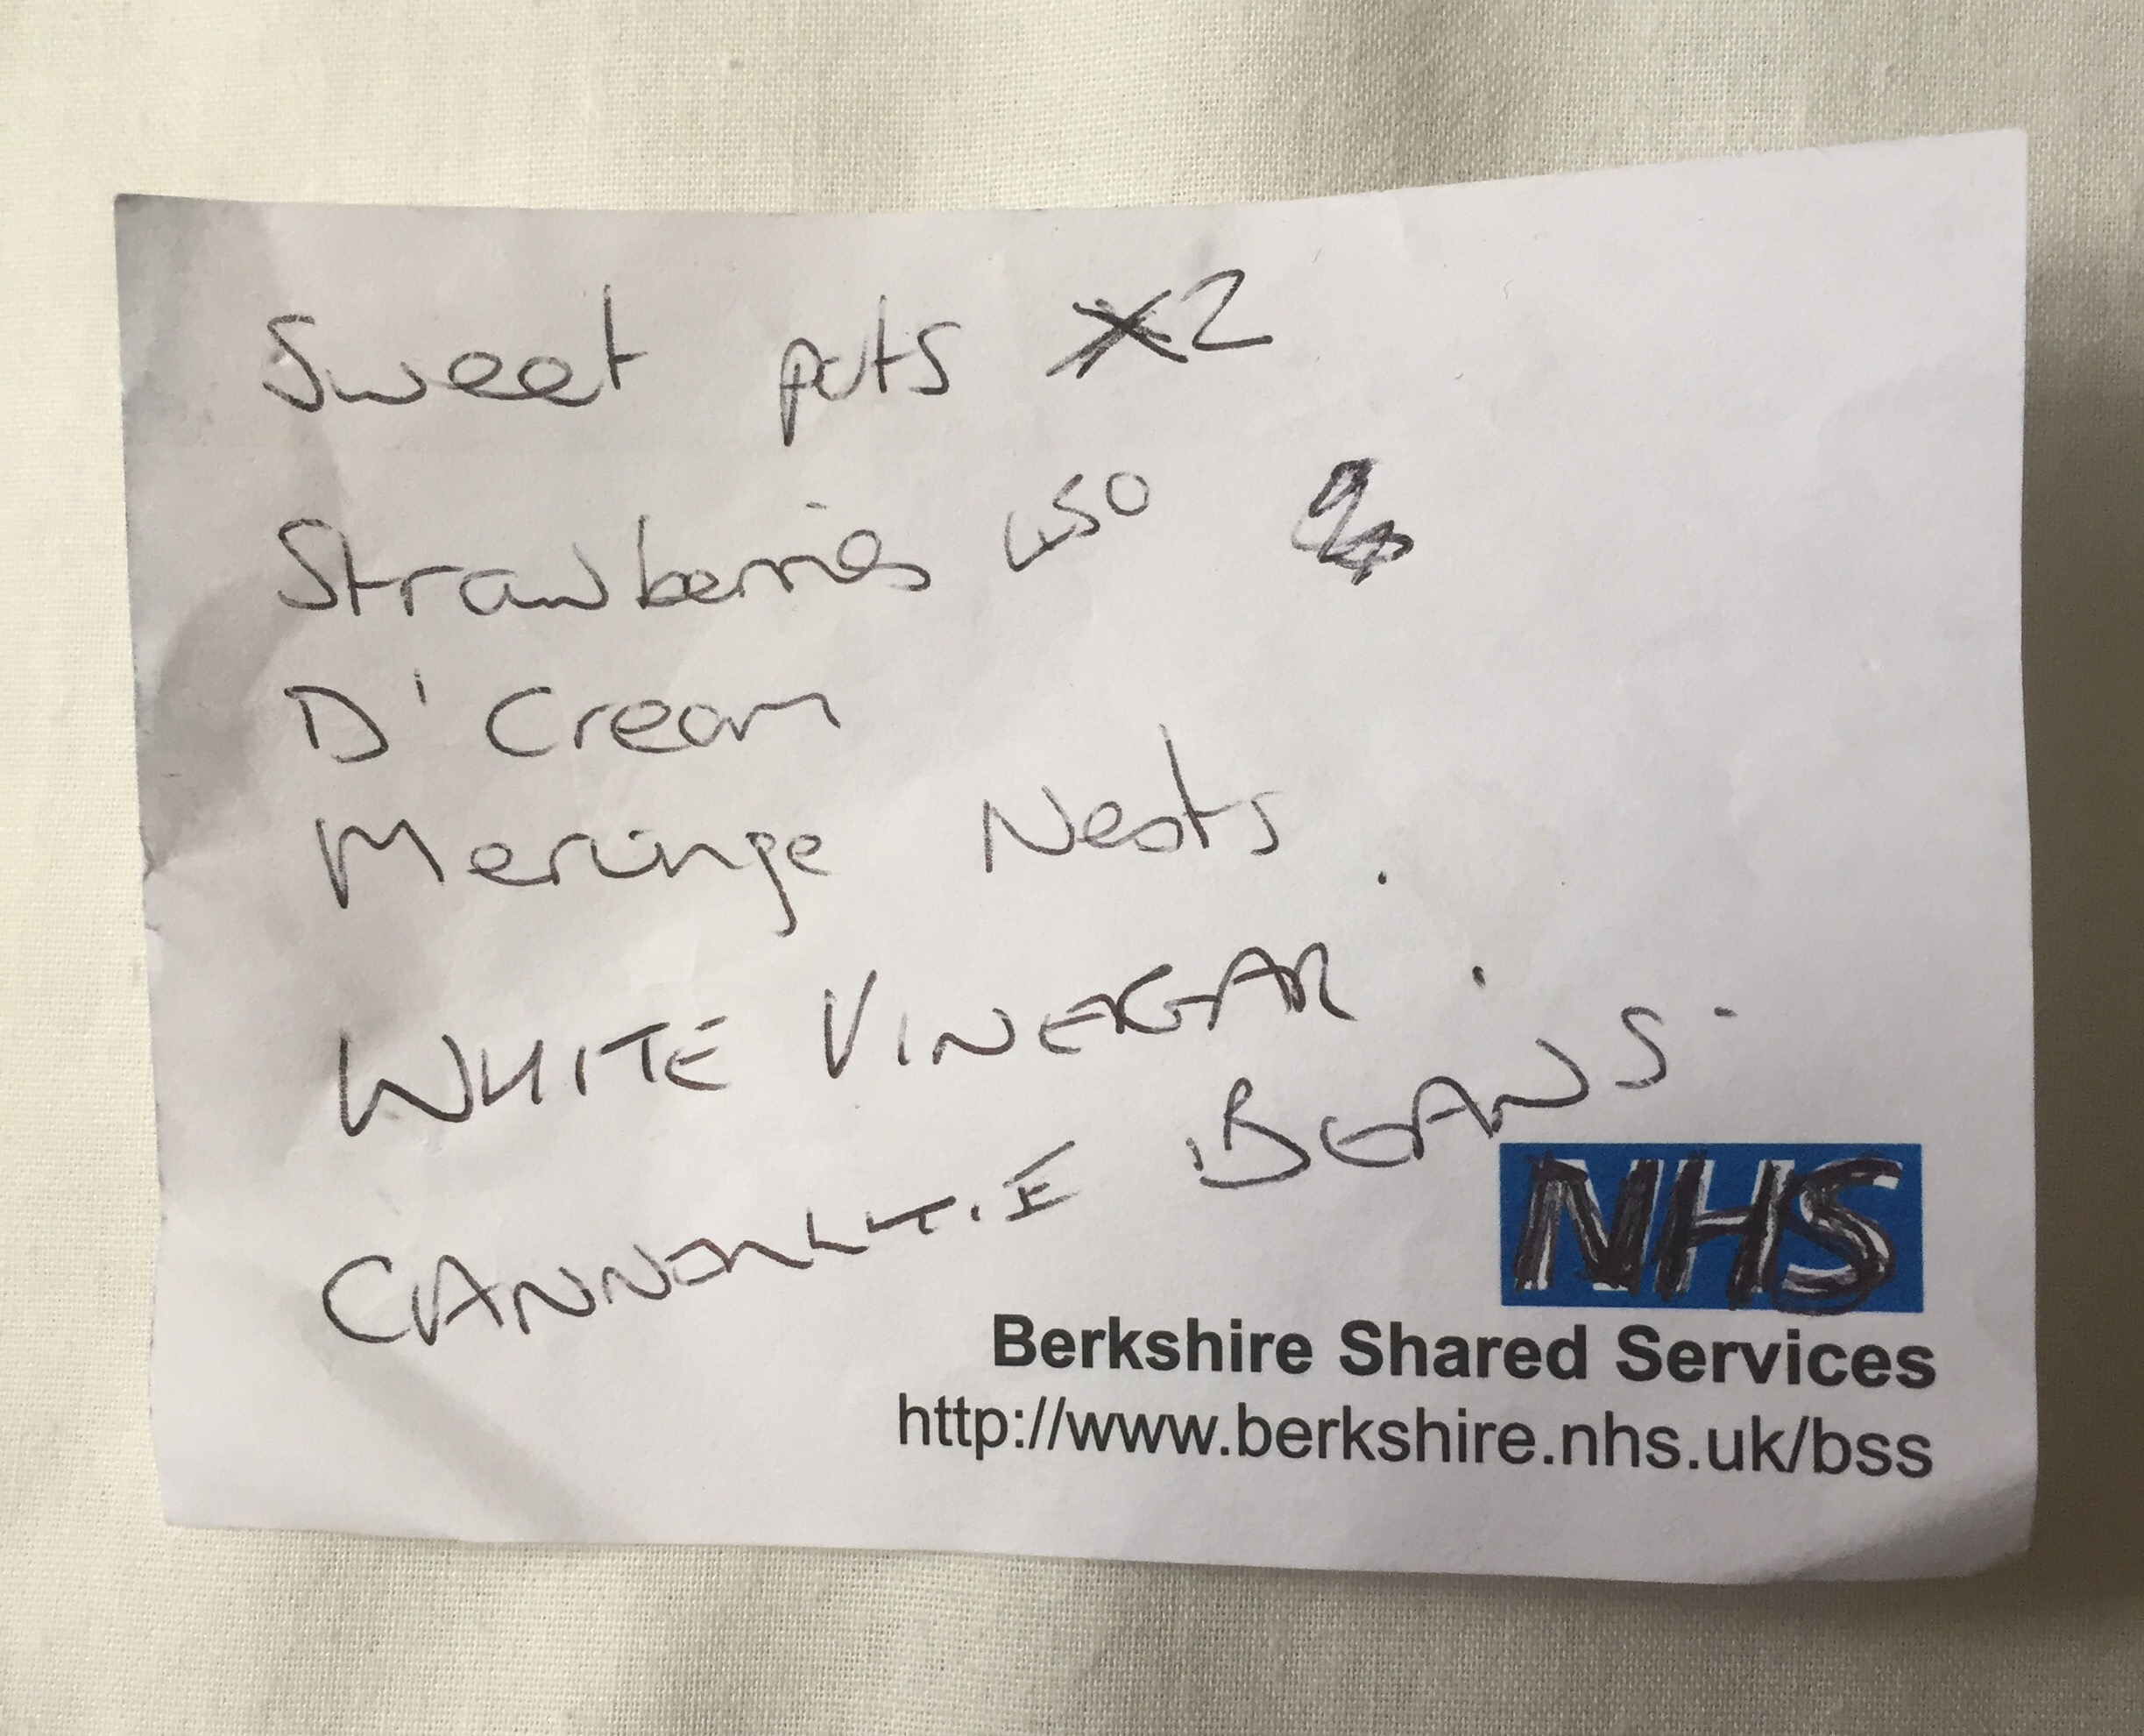 Sweet pots X2
Strawberries 450
D' Cream
Meringe Nests.
WHITE VINEGAR.
BEANS.
NHS
Berkshire Shared Services
http://www.berkshire.nhs.uk/bss